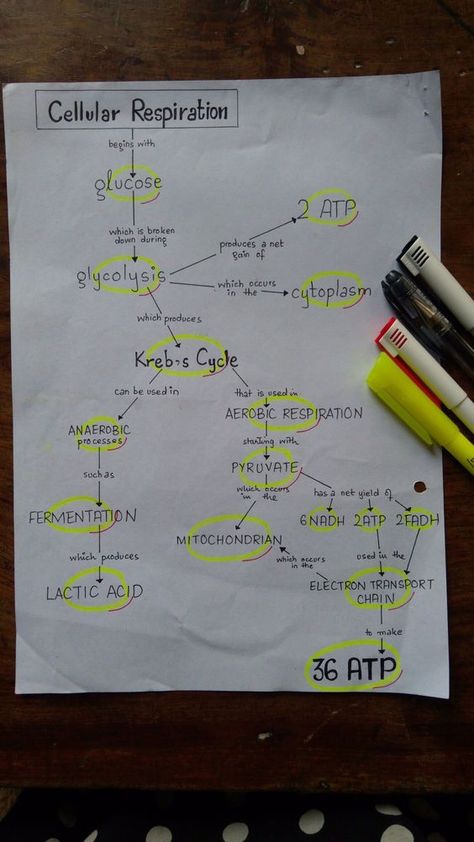 Cellular Respiration
begins with
glucose
which is broken
down during
2 ATP
produces a net
gain of
glycolysis
which occurs
in the
cytoplasm
which produces
Kreb's Cycle
can be used in
that is used in
ANAEROBIC
processes
AEROBIC RESPIRATION
starting with
such as
PYRUVATE
which occurs
in the
has a net yield of
FERMENTATION
6NADH 2ATP 2FADH
MITOCHONDRIAN
which produces
which occurs
in the
used in the
LACTIC ACID
ELECTRON TRANSPORT
CHAIN
to make
36 ATP